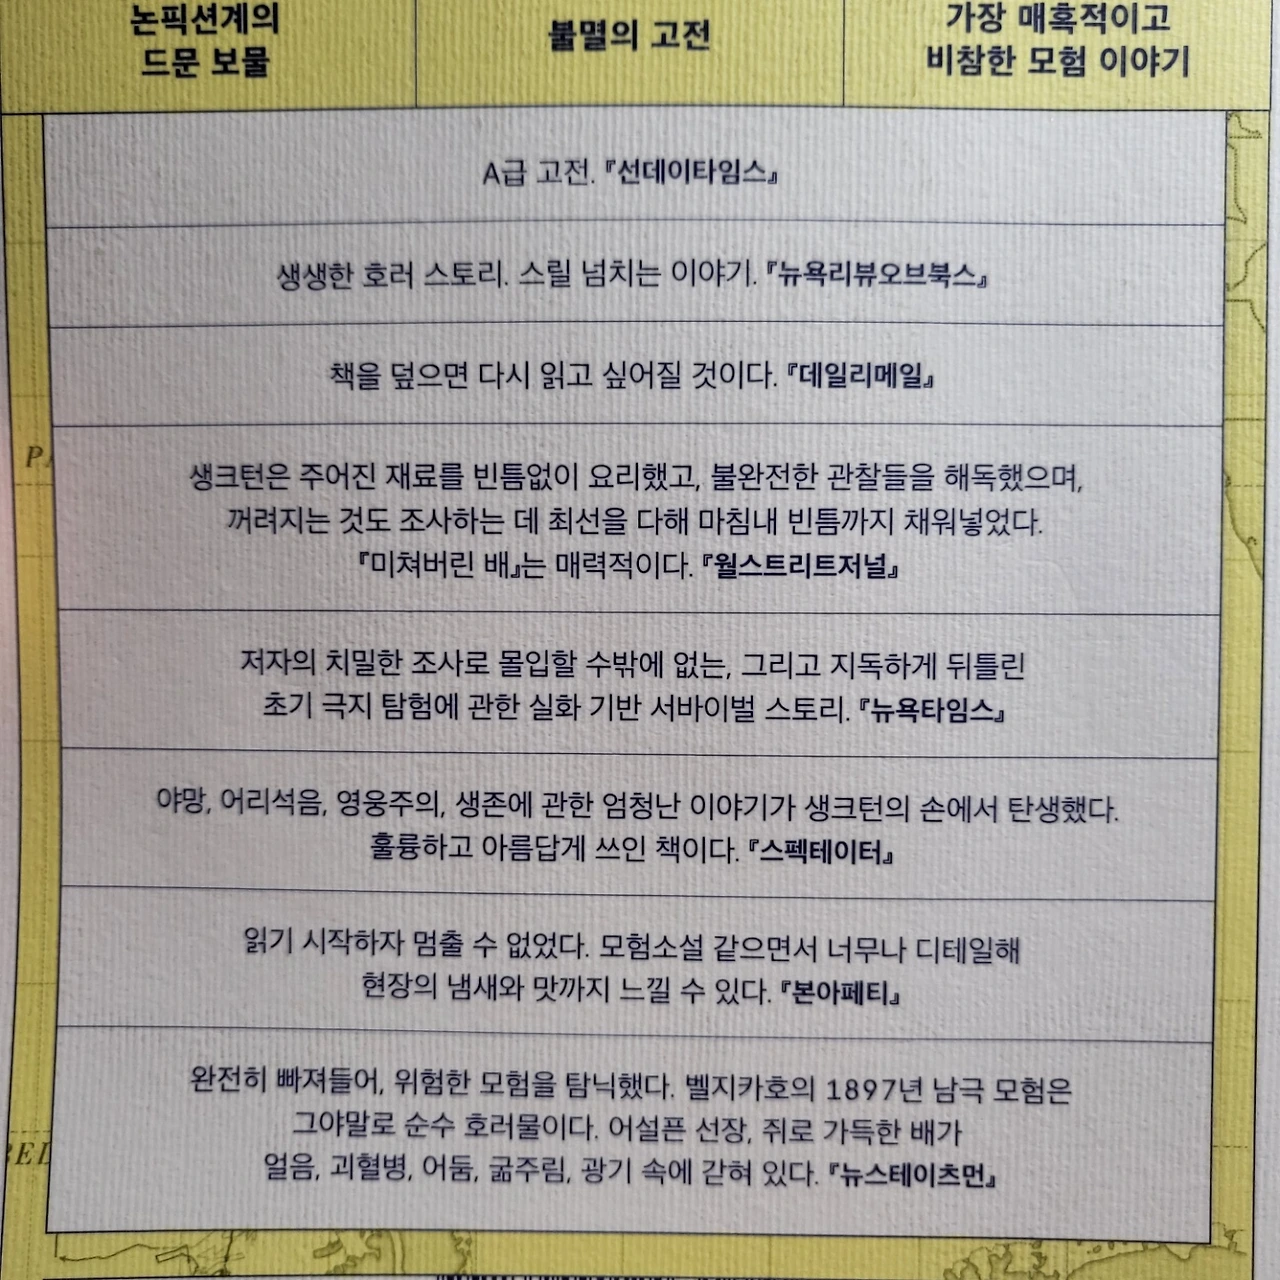 논픽션계의
드문 보물
불멸의 고전
가장 매혹적이고
비참한 모험 이야기
A급 고전. 『선데이타임스』
생생한 호러 스토리. 스릴 넘치는 이야기. 『뉴욕리뷰오브북스』
책을 덮으면 다시 읽고 싶어질 것이다. 『데일리메일』
생크턴은 주어진 재료를 빈틈없이 요리했고, 불완전한 관찰들을 해독했으며,
꺼려지는 것도 조사하는 데 최선을 다해 마침내 빈틈까지 채워넣었다.
『미쳐버린 배』는 매력적이다. 『월스트리트저널』
저자의 치밀한 조사로 몰입할 수밖에 없는, 그리고 지독하게 뒤틀린
초기 극지 탐험에 관한 실화 기반 서바이벌 스토리. 『뉴욕타임스』
야망, 어리석음, 영웅주의, 생존에 관한 엄청난 이야기가 생크턴의 손에서 탄생했다.
훌륭하고 아름답게 쓰인 책이다. 『스펙테이터』
읽기 시작하자 멈출 수 없었다. 모험소설 같으면서 너무나 디테일해
현장의 냄새와 맛까지 느낄 수 있다. 『본아페티』
완전히 빠져들어, 위험한 모험을 탐닉했다. 벨지카호의 1897년 남극 모험은
그야말로 순수 호러물이다. 어설픈 선장, 쥐로 가득한 배가
얼음, 괴혈병, 어둠, 굶주림, 광기 속에 갇혀 있다. 『뉴스테이츠먼』